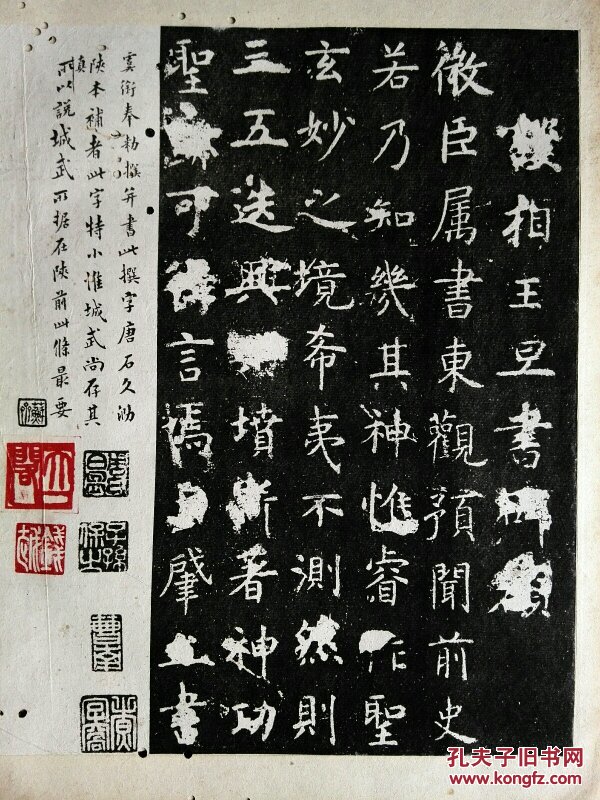 護相王旦書碑額
微臣属書東觀預聞前史
若乃知幾其神惟睿作聖
玄妙之境希夷不測然則
三五迭興墳斯著神功
聖迹可得言焉自肇立書
虞銜奉勅撰并書此撰字唐石久泐
陝本補者此字特小惟城武尚存其
真所以說城武所据在陝前此條最要
子孫保之
孔夫子旧书网
www.kongfz.com